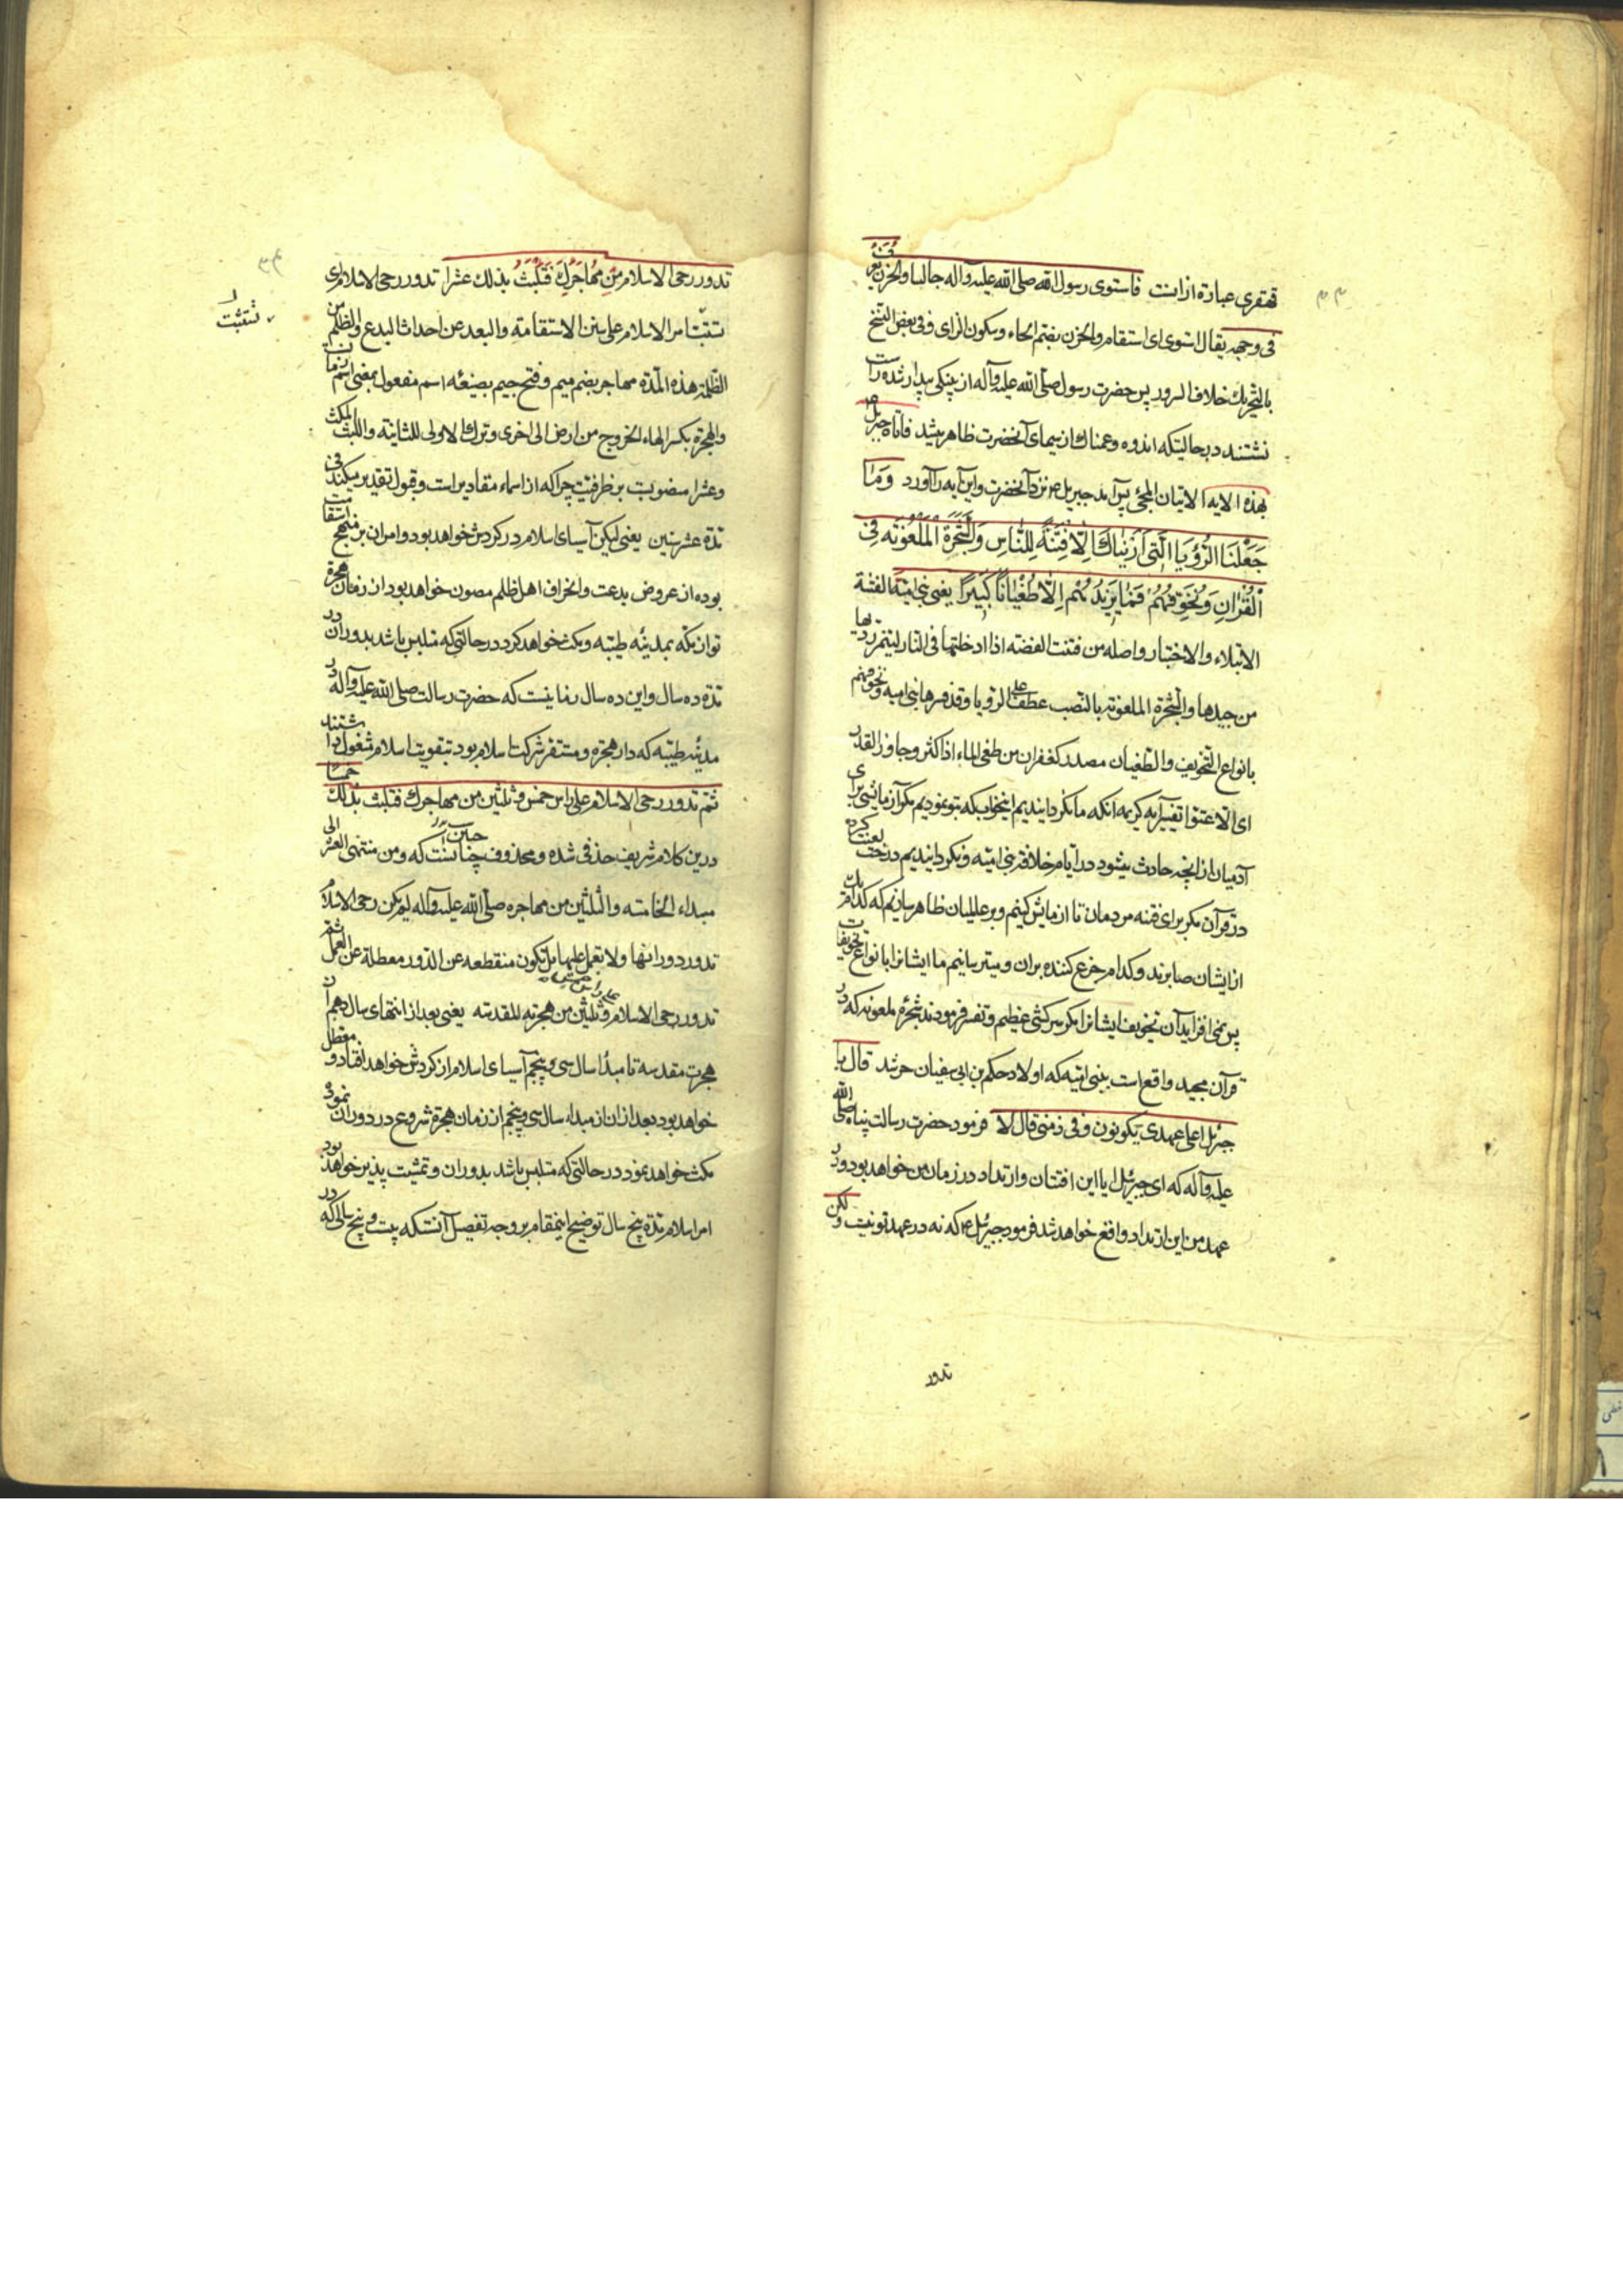 قهقری عبارة ازانست فاستوی رسول الله صلی الله علیه وآله جالسا والحزن یعرف
فی وجهه یقال استوی ای استقام والحزن بضم الحاء وسکون الزای وفی بعض النسخ
بالتحریک خلاف السرور پس حضرت رسول صلی الله علیه وآله از پینکی بیدار شده راست
نشستند درحالیتکه اندوه وغمناک از سیمای آنحضرت ظاهر میشد فاتاه جبریل
بهذه الایه الاتیان المجئ پس آمد جبریل ع نزد آنحضرت واین آیه را آورد وَمَا
جَعَلْنَا الرُّؤْیَا الَّتِی اَرَیْنَاکَ اِلَّا فِتْنَةً لِلنَّاسِ وَالشَّجَرَةَ الْمَلْعُونَةَ فِی
الْقُرْانِ وَنُخَوِّفُهُمْ فَمَا یَزِیدُهُمْ اِلَّا طُغْیَانًا کَبِیرًا یعنی بنی امیّة الفتنة
الابتلاء والاختبار واصله من فتنت الفضه اذا ادخلتها فی النار لیتمیز ردیها
من جیدها والشجرة الملعونه بالنصب عطف علی الرؤیا وقد فسرها بنی امیه ونخوفهم
بانواع التخویف والطغیان مصدر کغفران من طغی الماء اذا کثر وجاوز القدر
ای الا عتوا تفسیر آیه کریمه آنکه ما نکردانیدیم اینخواب که بتو نمودیم مکر آزمایشی برای
آدمیان از آنچه حادث میشود در ایام خلافة بنی امیّه ونکردانیدیم درخت لعنت کرده
در قرآن مکر برای فتنه مردمان تا ازمایش کنیم وبر عالمیان ظاهر سازیم که کدام یک
از ایشان صابرند وکدام جزع کننده بران ومیترسانیم ما ایشانرا بانواع تخویفات
پس نمی افزاید آن تخویف ایشانرا مکر سرکشی عظیم وتفسیر فرمودند شجرهٔ ملعونه که در
قرآن مجید واقع است ببنی امیّه که اولاد حکم بن ابی سفیان حربند قال یا
جبرئیل اعلی عهدی یکونون وفی زمنی قال لا فرمود حضرت رسالت پناه صلی الله
علیه وآله که ای جبرئیل ایا این افتتان وارتداد در زمان من خواهد بود ودر
عهد من این ارتداد واقع خواهد شد فرمود جبرئیل ع که نه در عهد تو نیست ولکن
تدور
تدور رحی الاسلام مِنْ مُهَاجَرِکَ فَتَلْبَثُ بذلک عشرا تدور رحی الاسلام ای
تثبت امر الاسلام علی سنن الاستقامة والبعد عن احداث البدع والظلم من
تستثبت
الظلمة هذه المدة مهاجر بضم میم وفتح جیم بصیغهٔ اسم مفعول بمعنی اسم زمانست
والهجرة بکسر الهاء الخروج من ارض الی اخری وترک الاولی للثانیة واللبث المکث
وعشرا منصوبست بر ظرفیت چراکه از اسماء مقادیر است وبقول تقدیر میکند فی
مدة عشر سنین یعنی لیکن آسیای اسلام در کردش خواهد بود وامر آن بر منهج استقامت
بوده از عروض بدعت وانحراف اهل ظلم مصون خواهد بود از زمان هجرة
تو از مکه بمدینه طیبه ومکث خواهد کرد در حالتی که متلبس باشد بدوران در
مدة ده سال واین ده سال زمانیست که حضرت رسالت صلی الله علیه وآله در
مدینه طیبه که دار هجرة ومستقر شرکت اسلام بود بتقویت اسلام شغول داشتند
ثم تدور رحی الاسلام علی راس خمس وثلثین من مهاجرک فتلبث بذلک خمسا
درین کلام شریف حذفی شده ومحذوف چنانست که ومن منتهی العشر الی
حین
مبداء الخامسه والثلثین من مهاجره صلی الله علیه وآله لم یکن رحی الاسلام
تدور دورانها ولا یعمل علیها بل تکون منقطعه عن الدور معطلة عن العمل ثم
تدور رحی الاسلام علی راس خمس وثلثین من هجرته المقدسه یعنی بعد از انتهای سال دهم از
هجرت مقدسه تا مبدأ سال سی وپنجم آسیای اسلام از کردش خواهد افتاد ومعطل
خواهد بود وبعد از ان از مبداء سال سی وپنجم از زمان هجرة شروع در دوران نموده
مکث خواهد نمود در حالتی که متلبس باشد بدوران وتمشیت پذیر خواهد بود
امر اسلام مدة پنج سال توضیح اینمقام بر وجه تفصیل آنستکه بیست وپنج سالی که در